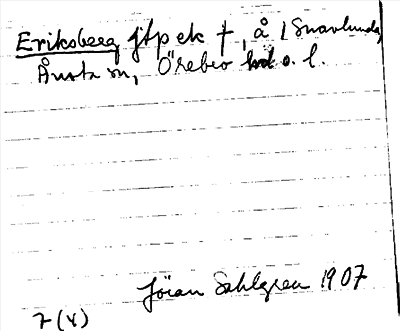 Eriksberg jtp ek †, å (Snavlunda)
Ånsta sn, Örebro hd o. l.
Jöran Sahlgren 1907
7(4)